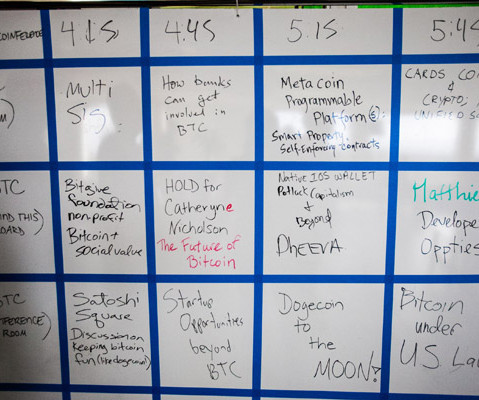 CONFERENCE
4:15
4:45
5:15
5:45
Multi
Sig
How banks
can get
involved in
BTC
Metacoin
Programmable
Platform(s):
Smart Property,
Self-Enforcing Contracts
CARDS
&
CRYPTO;
UNIFIED
BTC
(BEHIND THIS
BOARD)
Bitgive
foundation
nonprofit
Bitcoin +
social value
HOLD for
Catheryne
Nicholson
The Future of
Bitcoin
Native IOS WALLET
Potluck Capitalism
&
Beyond
DHEEVA
Matthie
Develope
Oppties
BTC
CONFERENCE
ROOM
Satoshi
Square
Discussion on
keeping bitcoin
fun (like dogecoin)
Startup
Opportunities
beyond
BTC
Dogecoin
to
the
MOON!
Bitcoin
under
US La